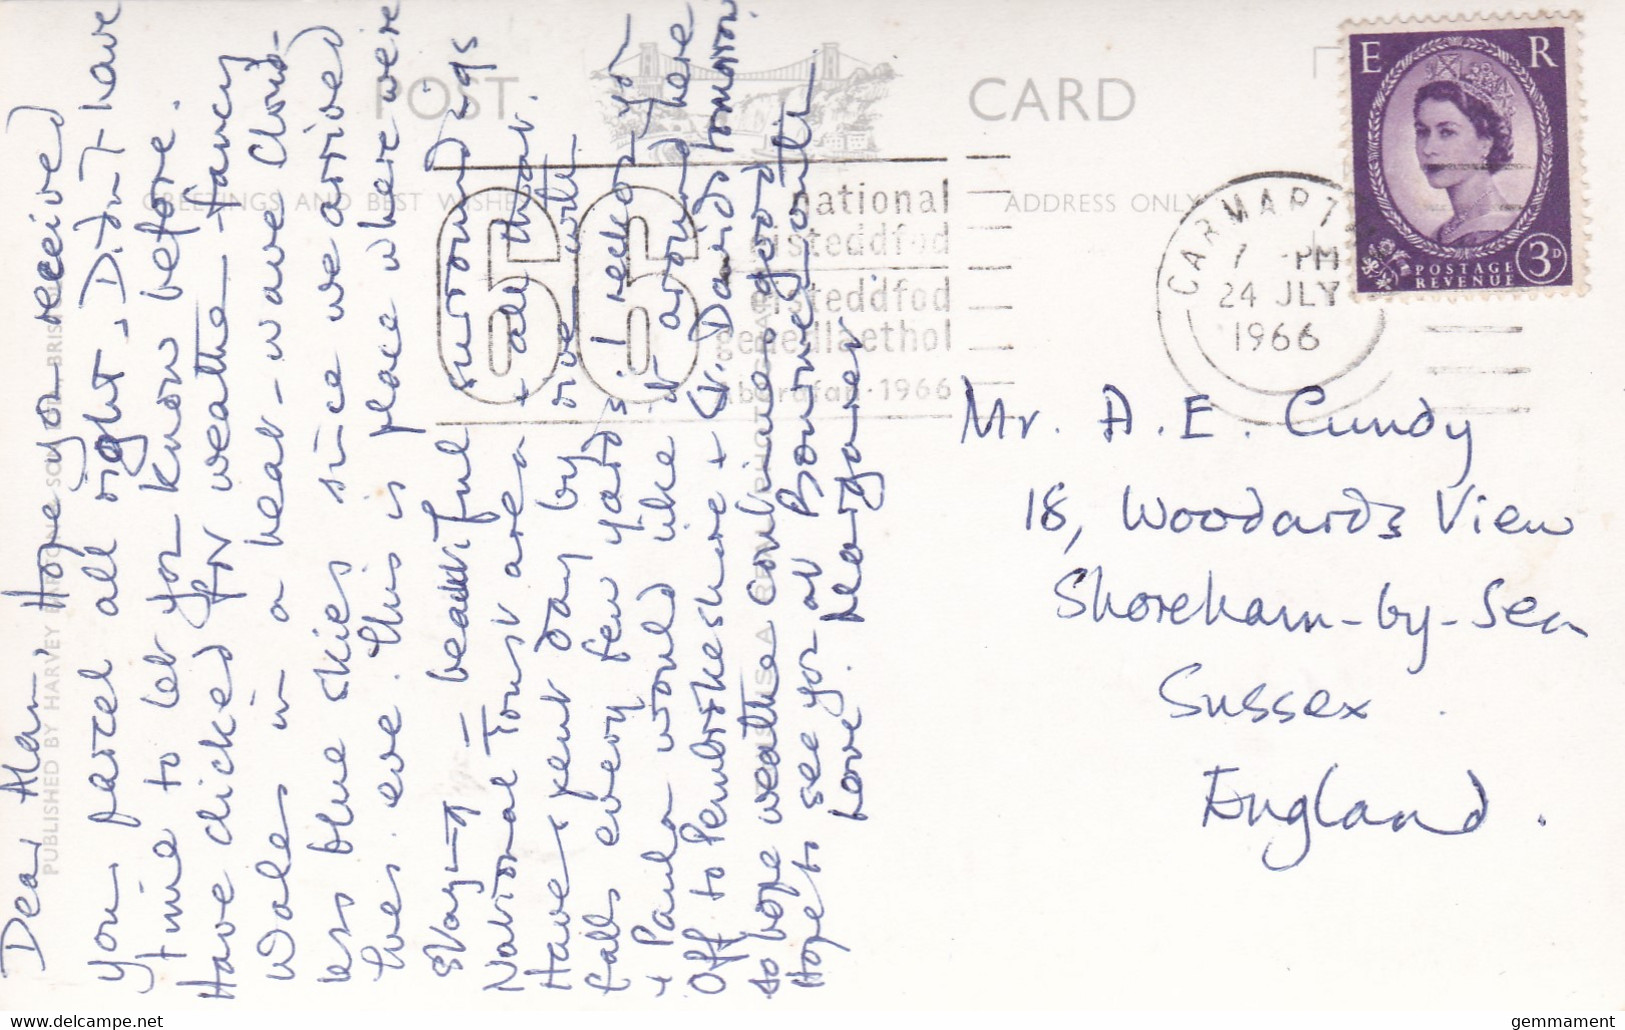 POST CARD
GREETINGS AND BEST WISHES
ADDRESS ONLY
PUBLISHED BY HARVEY BARTON & SON
BRIS
E R
POSTAGE
REVENUE
3D
CARMART
7 -PM
24 JLY
1966
66
national
eisteddfod
eisteddfod
genedlaethol
Aberafan·1966
Dear Alan, Hope you received
your parcel all right. Didn't have
time to let you know before.
Have clicked for weather – fancy
Wales in a heat-wave Cloud-
less blue skies since we arrived
Tues. eve. This is place where we're
staying – beautiful surroundings
National Trust area + all that.
Have spent day by
falls every few yards I reckon you
+ Paula would like it around here
Off to Pembrokeshire + St. Davids tomorrow
so hope weather continues good
Hope to see you at Bournemouth
Love. Margaret
Mr. A. E. Cundy
18, Woodards View
Shoreham-by-Sea
Sussex
England.
gemmament